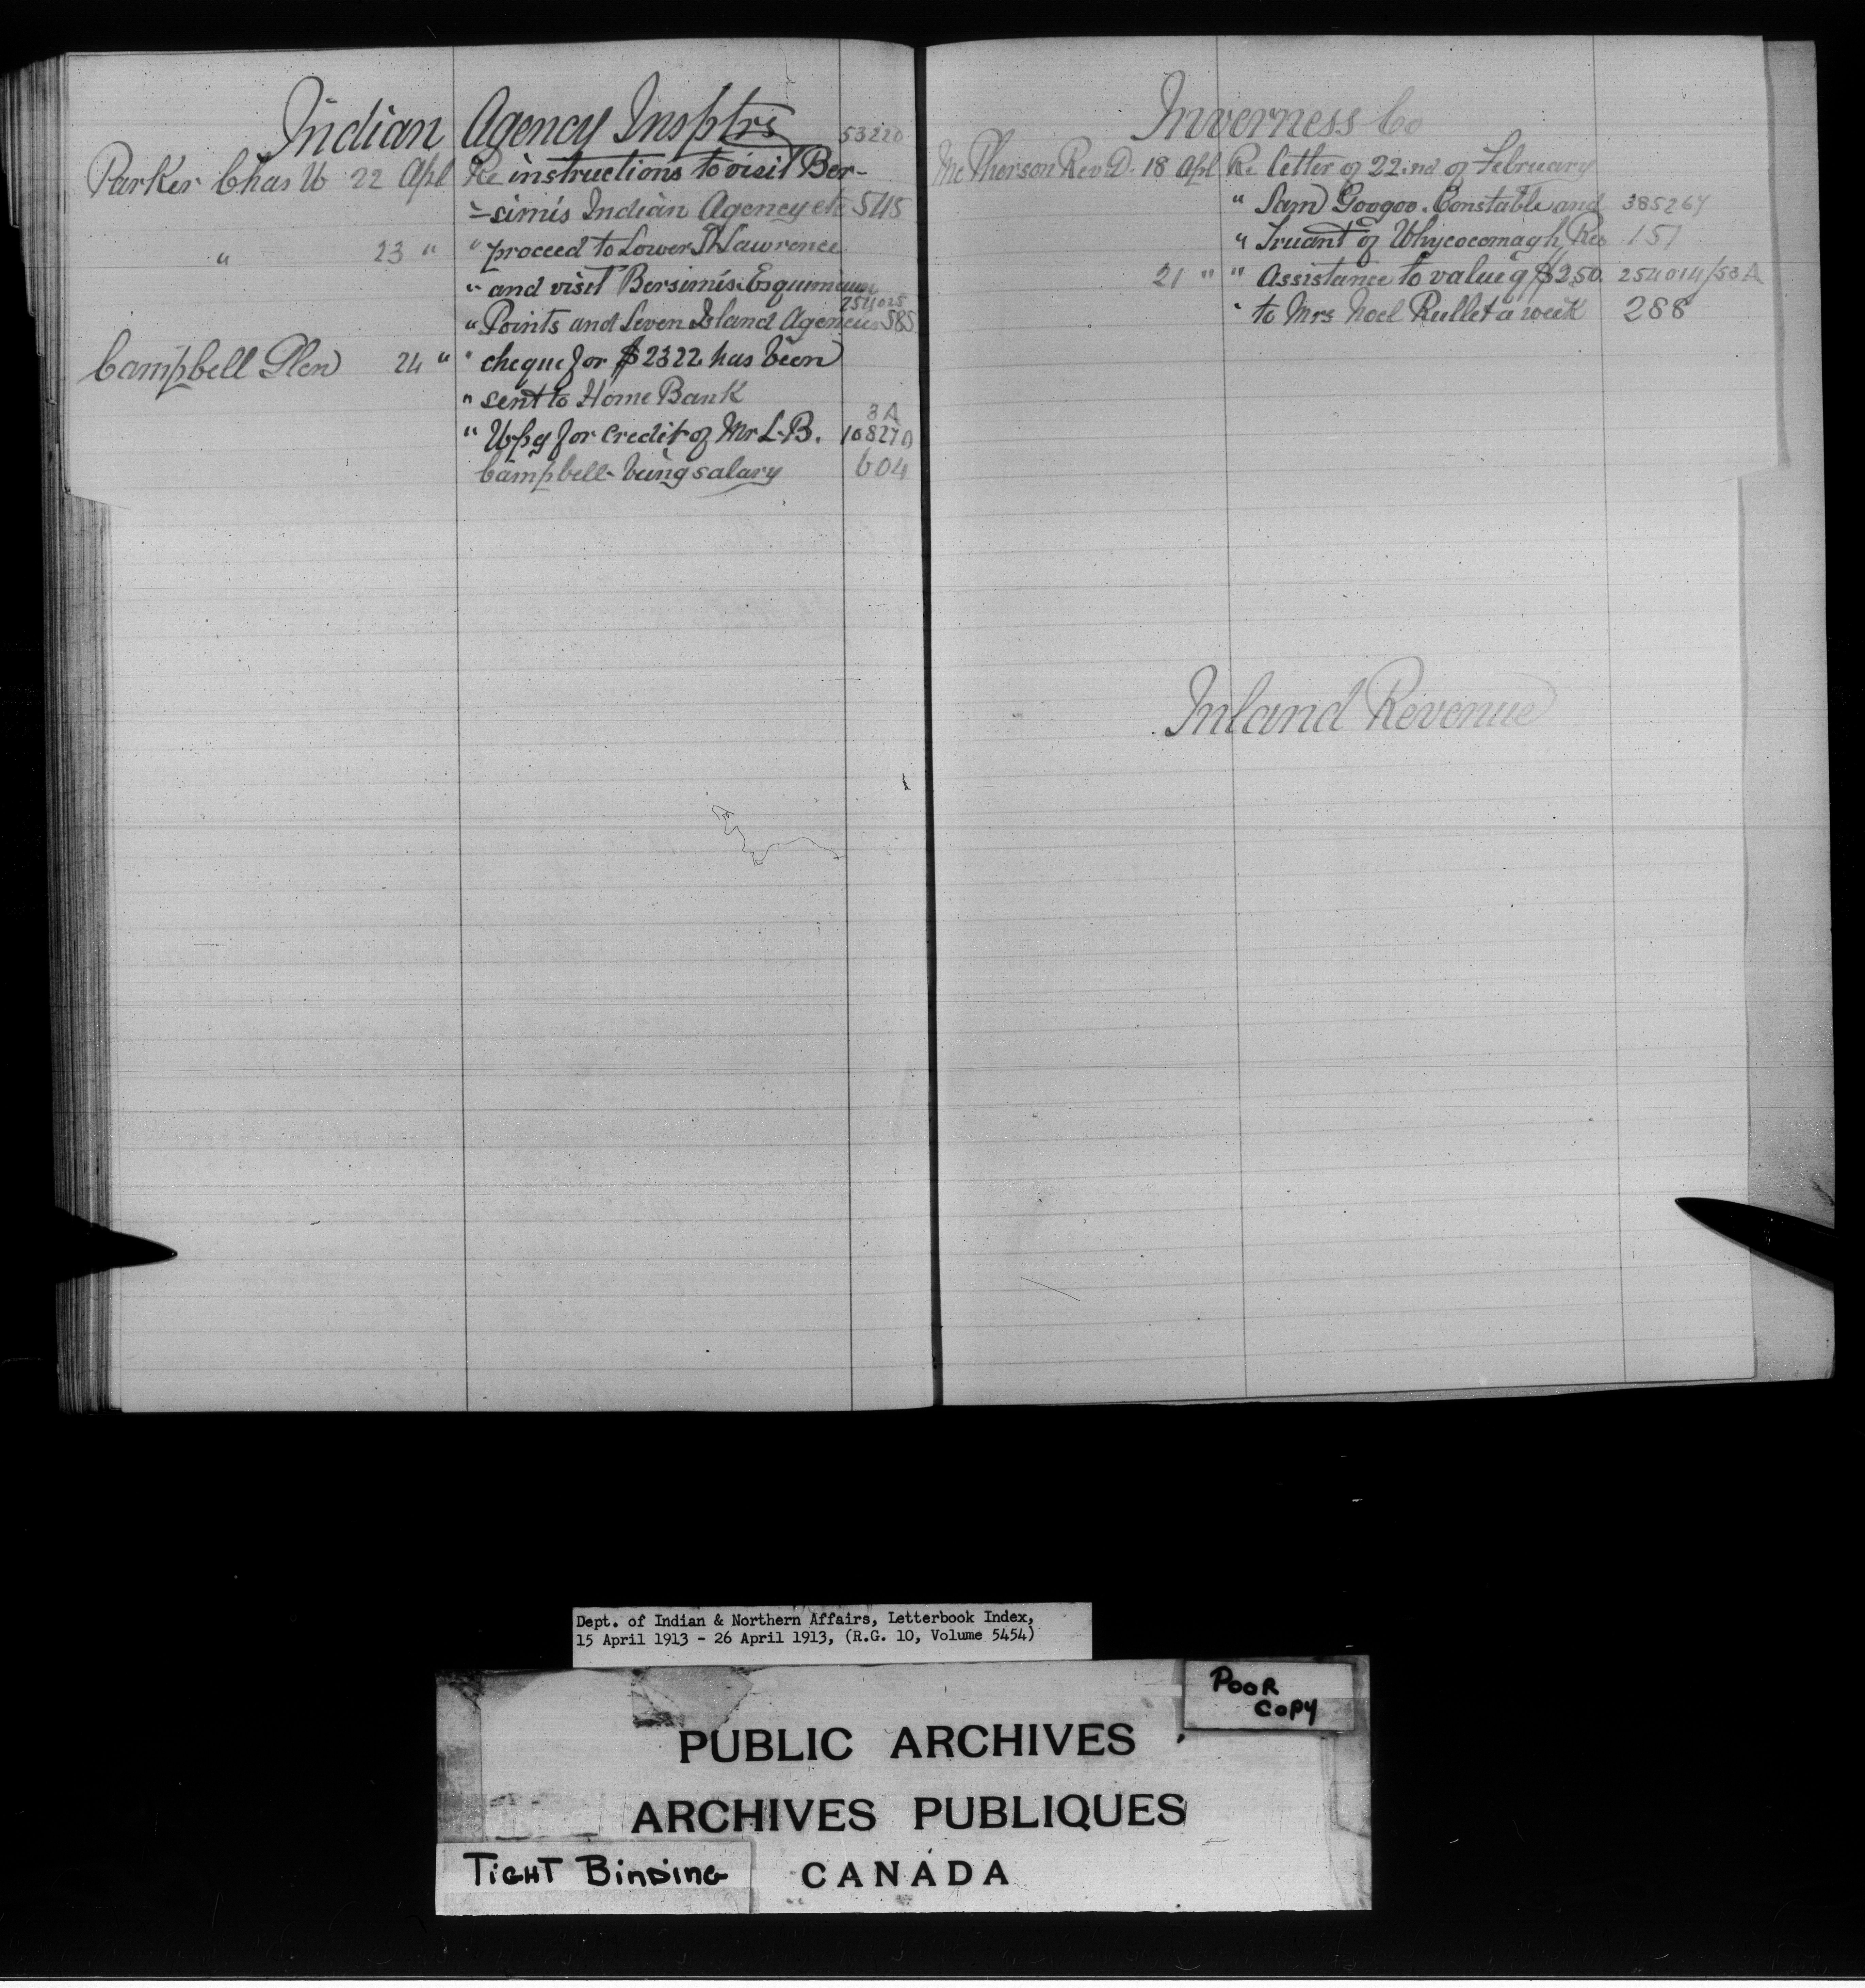 Indian Agency Insptrs
53220
Parker Chas W 22 Apl Re instructions to visit Ber-
-simis Indian Agency etc 545
" 23 " " proceed to Lower St Lawrence
" and visit Bersimis. Esquimaux
254025
" Points and Seven Island Agencies 585
Campbell Glen 24 " " cheque for $2322 has been
" sent to Home Bank
3A
" Wpg for credit of Mr L. B. 10827
Campbell - being salary 604
Inverness Co
McPherson Rev D. 18 Apl Re letter of 22nd of February
" Sam Googoo. Constable and 385267
" Truant of Whycocomagh Res 151
21 " " Assistance to value of $2.50. 254014/53A
" to Mrs Noel Rullet a week 288
Inland Revenue
Dept. of Indian & Northern Affairs, Letterbook Index,
15 April 1913 - 26 April 1913, (R.G. 10, Volume 5454)
POOR
COPY
PUBLIC ARCHIVES
ARCHIVES PUBLIQUES
TIGHT BINDING
CANADA